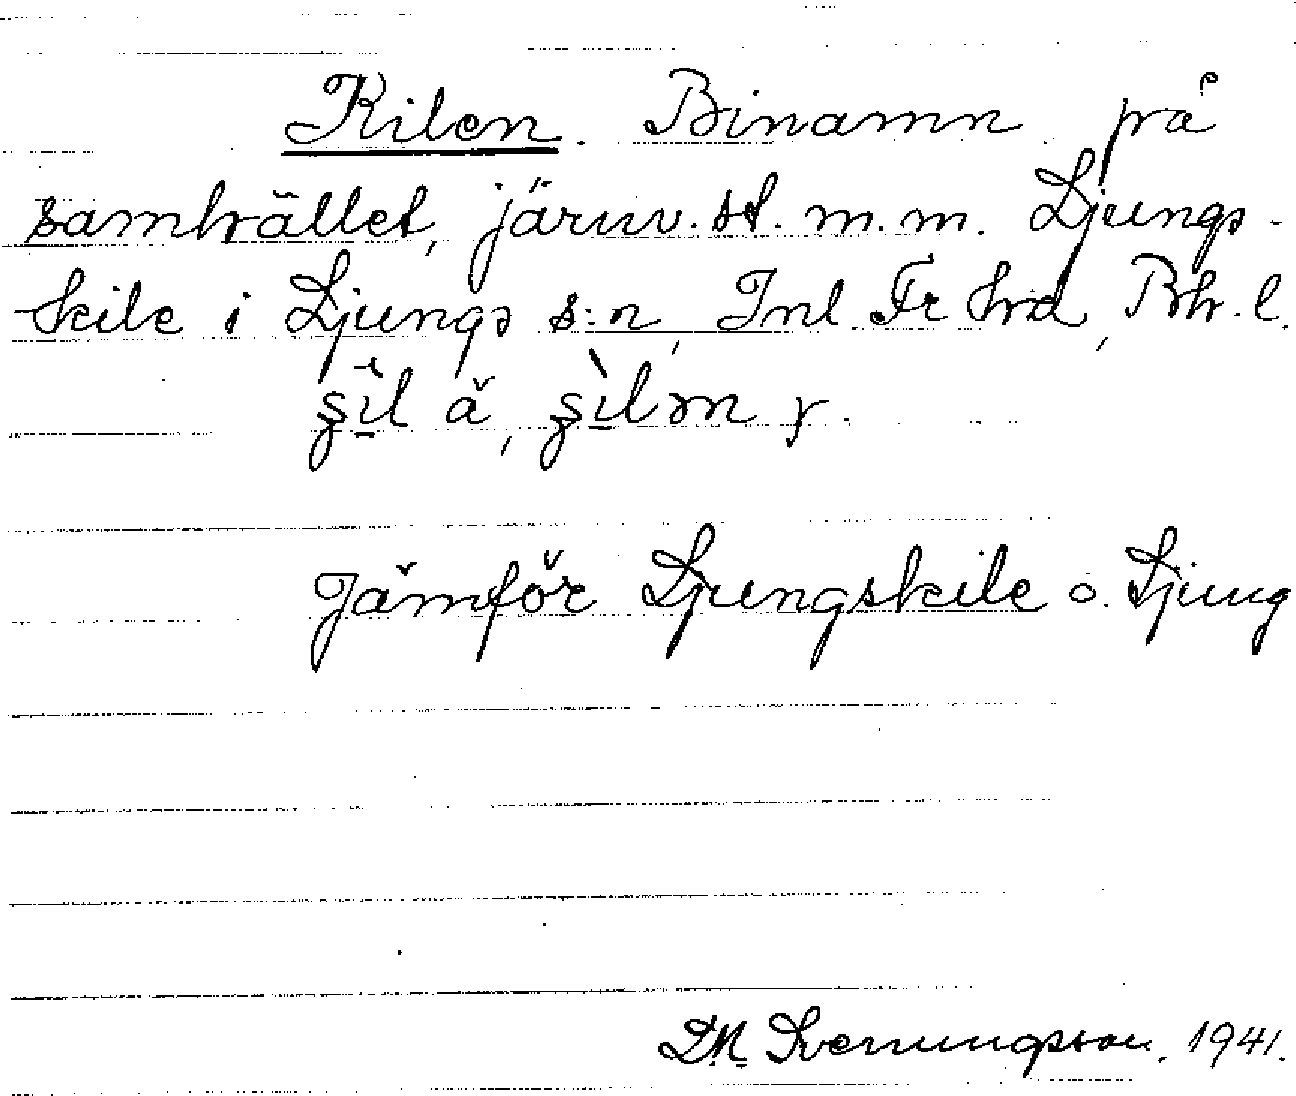 Kilen. Binamn på
samhället, järnv. st. m.m. Ljungs-
kile i Ljungs s:n, Inl. Fr. hrd, Bh. l.
Jämför Ljungskile o. Ljung
Sverungsson. 1941.